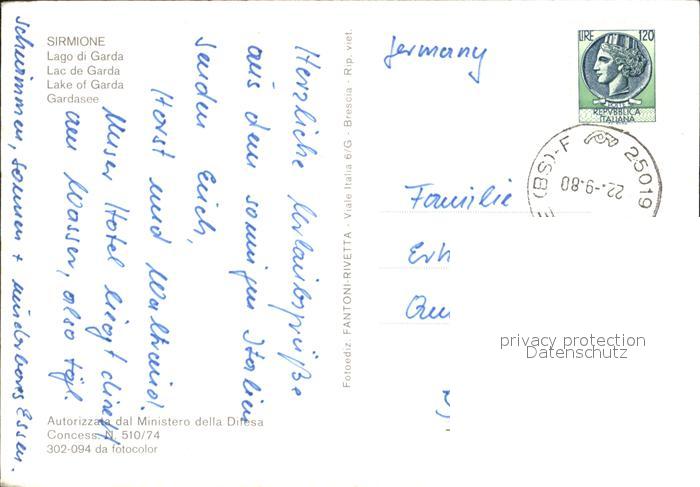 SIRMIONE
Lago di Garda
Lac de Garda
Lake of Garda
Gardasee
Herzliche Urlaubsgrüße
aus dem sonnigen Italien
senden Euch,
Horst und Waltraud.
Unser Hotel liegt direkt
am Wasser, also tägl.
schwimmen, sonnen + wunderbares Essen.
Autorizzata dal Ministero della Difesa
Concess. N. 510/74
302-094 da fotocolor
Fotoediz. FANTONI-RIVETTA - Viale Italia 6/G - Brescia - Rip. viet.
Germany
LIRE 120
REPVBBLICA
ITALIANA
25019
(BS)-F
22.-9.80
Familie
Erh
privacy protection
Datenschutz